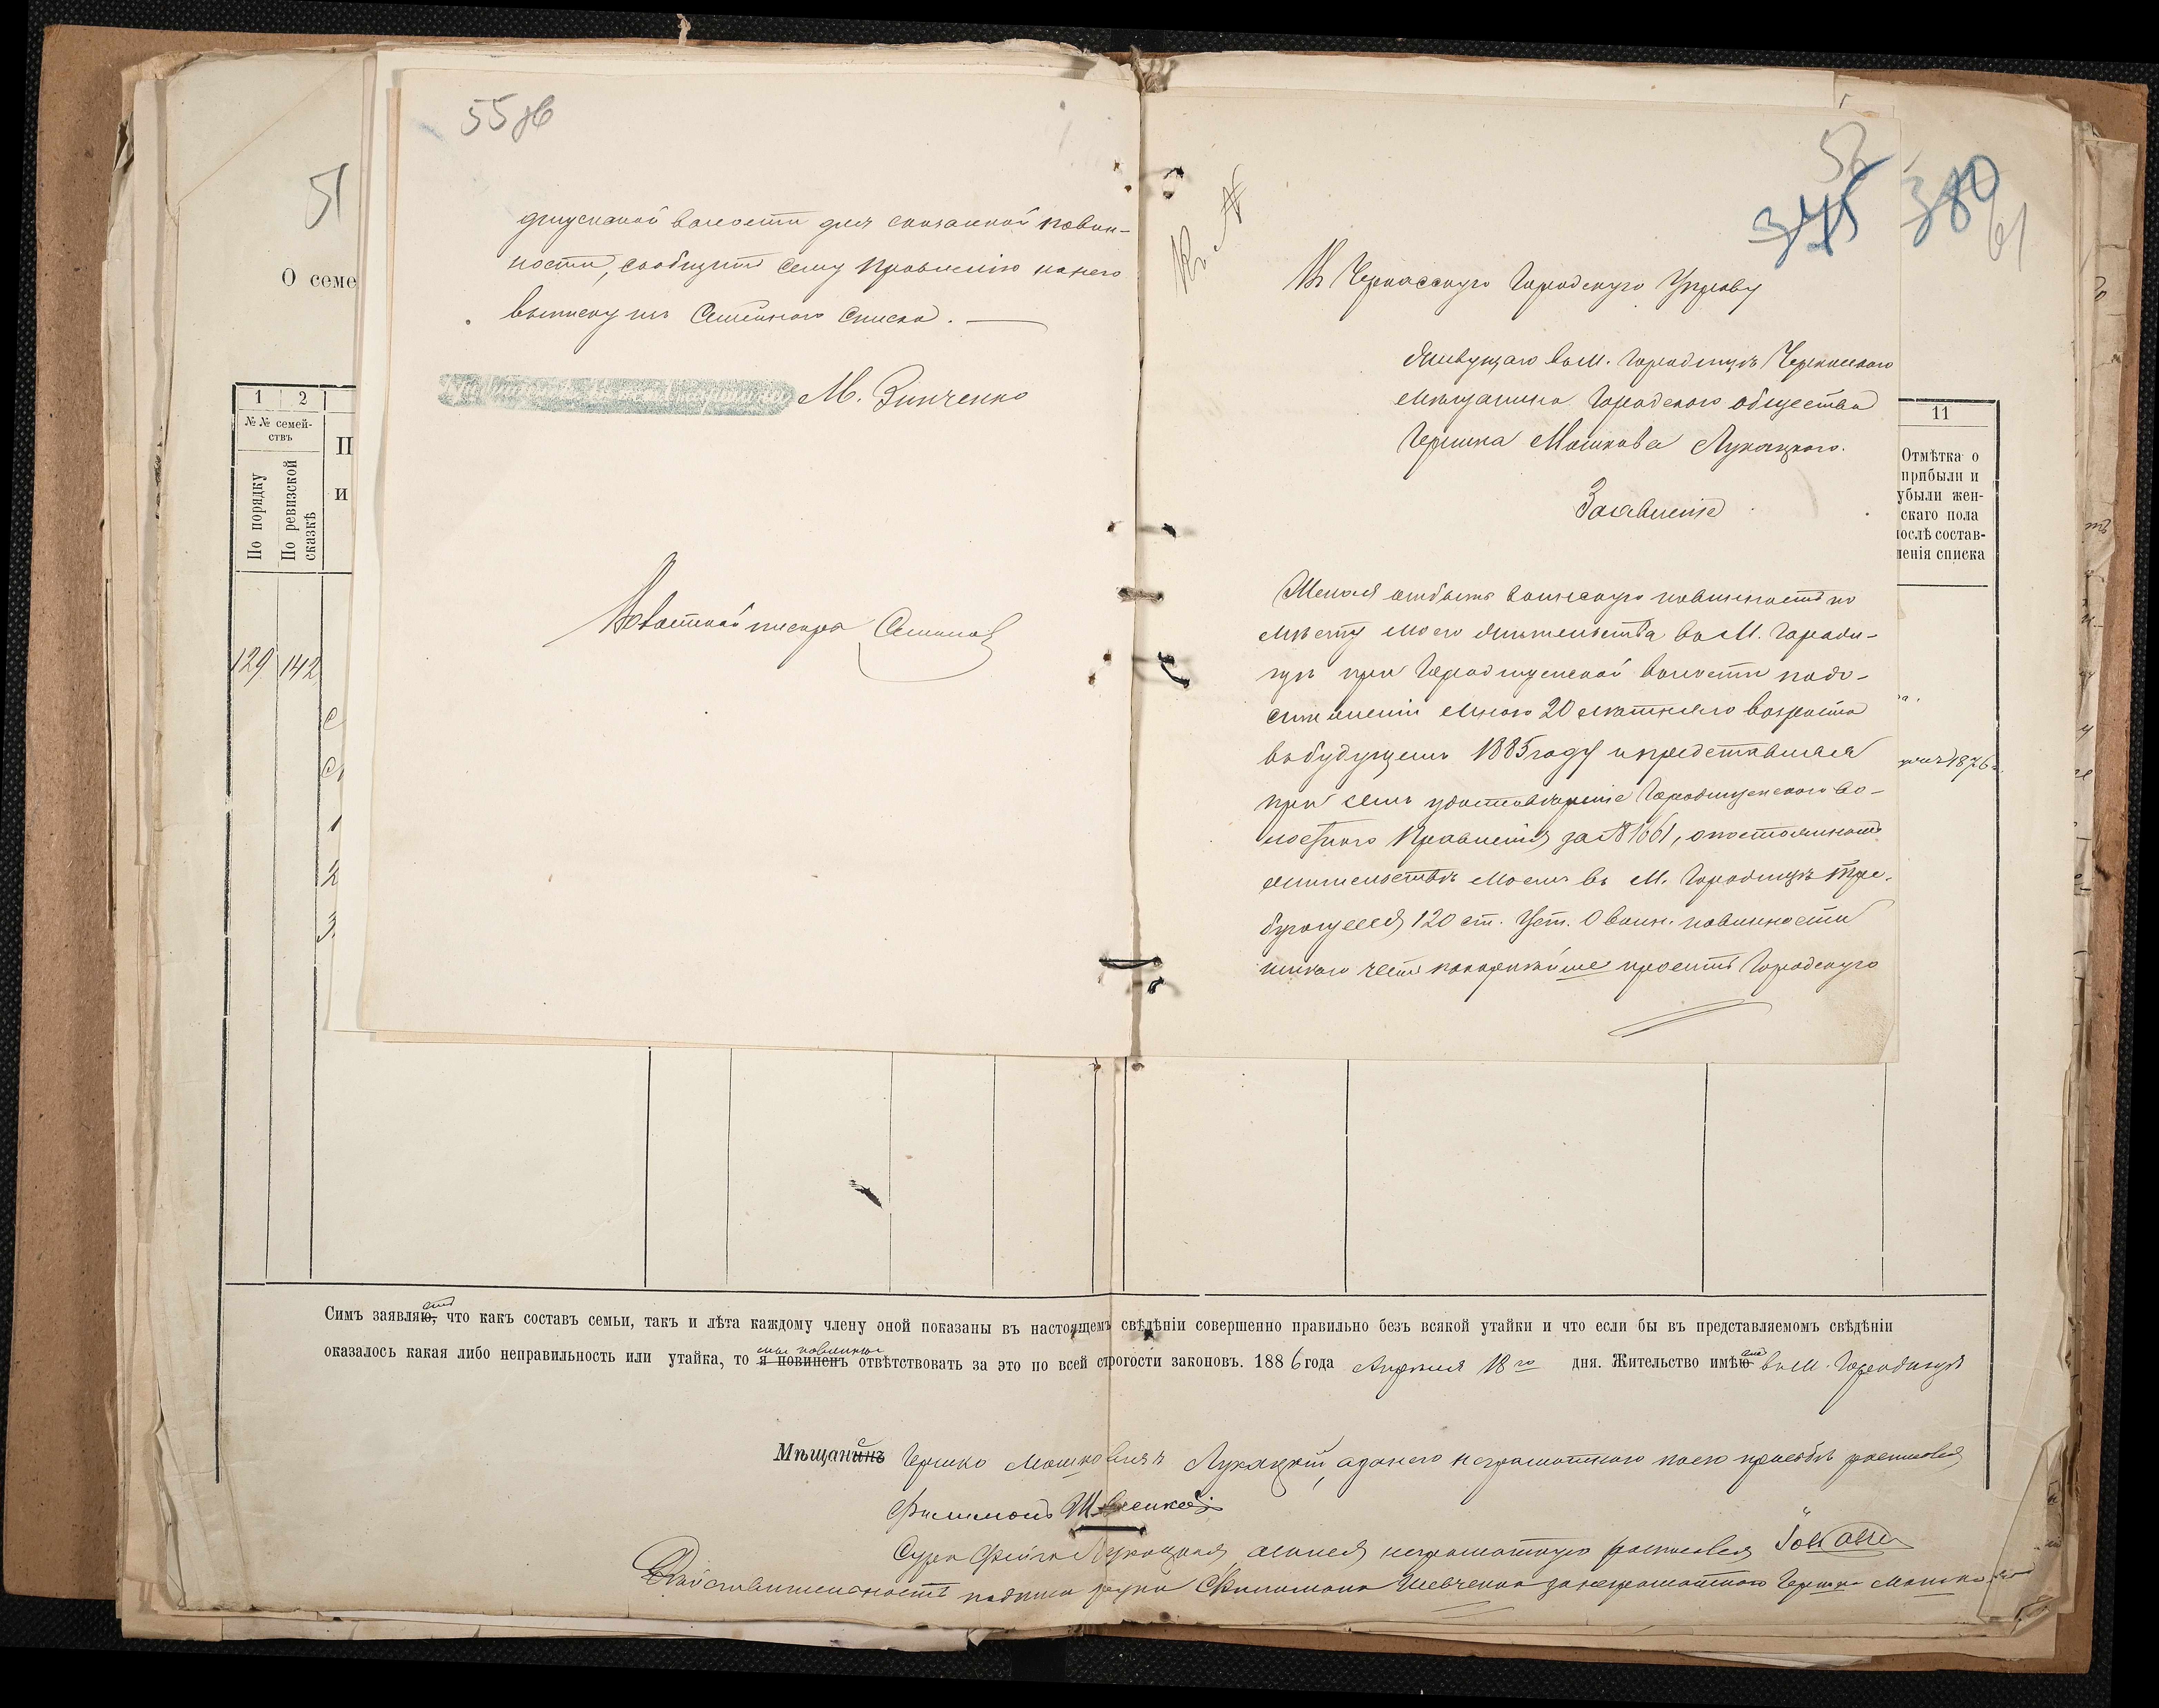 55 об
дищенской волости для сказанной повин-
ности, сообщить сему Правлению на него
выписку изъ Семейного Списка. —
М. Зинченко
Волостной писарь
56
345
Въ Черкасскую Городскую Управу
Живущаго въ м. Городищѣ Черкасского
мѣщанина Городского общества
Гершка Мошкова Лукацкого.
Заявление
Желая отбыть воинскую повинность по
мѣсту моего жительства въ М. Городи-
щѣ при Городищенской волости по до-
стижении мною 20 лѣтняго возраста
въ будущемъ 1885 году и представляя
при семъ удостоверение Городищенского Во-
лостного Правления за № 1661, о постоянномъ
жительствѣ моемъ въ М. Городищѣ тре-
бующееся 120 ст. Уст. О воин. повинности
покорнѣйше просить Городскую
380
61
51
О семе
1 2
№№ семей-
ствъ
По порядку
По ревизской
сказкѣ
П
и
129 142
1
2
3
11
Отмѣтка о
прибыли и
убыли жен-
скаго пола
послѣ состав-
ленія списка
1876
Симъ заявляю, что какъ составъ семьи, такъ и лѣта каждому члену оной показаны въ настоящемъ свѣдѣніи совершенно правильно безъ всякой утайки и что если бы въ представляемомъ свѣдѣніи
мы повинны
оказалось какая либо неправильность или утайка, то я повиненъ отвѣтствовать за это по всей строгости законовъ. 1886 года Апреля 18го дня. Жительство имѣю въ М. Городищѣ
Мѣщанинъ Гершко Мошковичъ Лукацкий, а за него неграмотного по его просьбѣ росписался
Филимонъ Шевченко
Сура Фейга Лукацкая, а за нея неграмотную росписался
Действительность подписи руки Филимона Шевченка за неграмотного Гершка Мошко